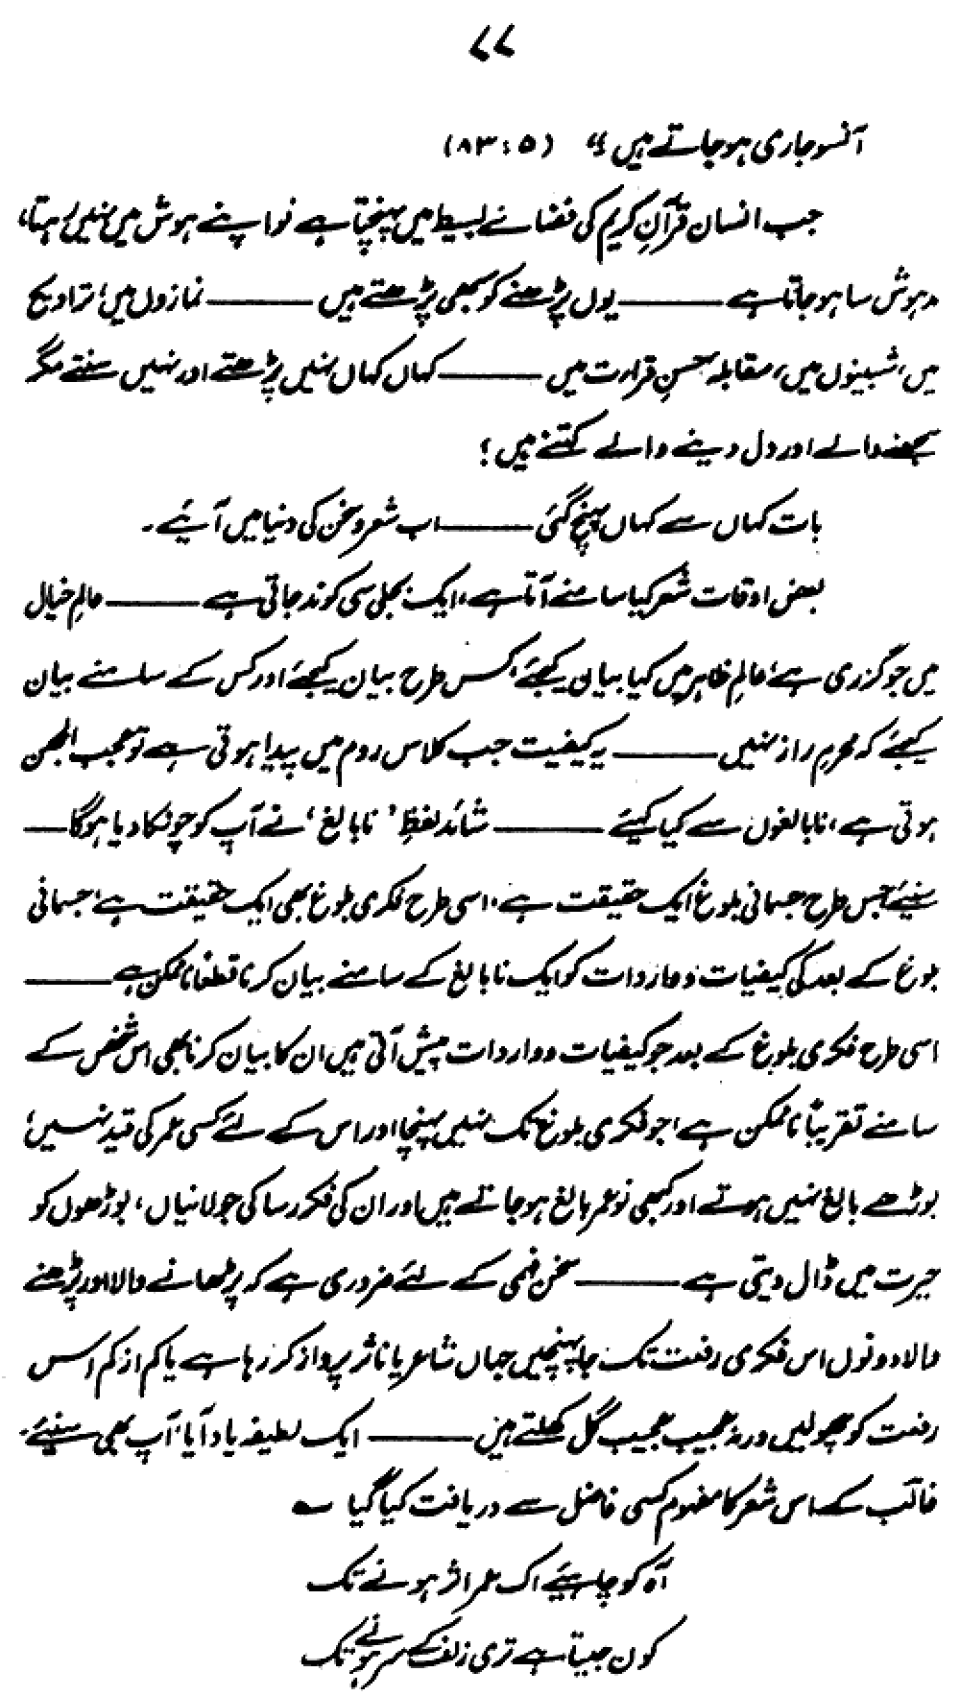 ۷۷
آنسو جاری ہو جاتے ہیں“ (۵:۸۳)
جب انسان قرآنِ کریم کی فضائے بسیط میں پہنچتا ہے تو اپنے ہوش میں نہیں رہتا،
مدہوش سا ہو جاتا ہے ——— یوں پڑھنے کو سبھی پڑھتے ہیں ——— نمازوں میں، تراویح
میں، شبینوں میں، مقابلہ حسنِ قراءت میں ——— کہاں کہاں نہیں پڑھتے اور نہیں سنتے مگر
سمجھنے والے اور دل دینے والے کتنے ہیں؟
بات کہاں سے کہاں پہنچ گئی ——— اب شعر و سخن کی دنیا میں آئیے۔
بعض اوقات شعر کیا سامنے آتا ہے، ایک بجلی سی کوند جاتی ہے ——— عالمِ خیال
میں جو گزری ہے، عالمِ ظاہر میں کیا بیان کیجئے، کس طرح بیان کیجئے اور کس کے سامنے بیان
کیجئے کہ محرمِ راز نہیں ——— یہ کیفیت جب کلاس روم میں پیدا ہوتی ہے تو عجب الجھن
ہوتی ہے، نابالغوں سے کیا کہیئے ——— شائد لفظِ ’نابالغ‘ نے آپ کو چونکا دیا ہوگا —
سنیئے! جس طرح جسمانی بلوغ ایک حقیقت ہے، اسی طرح فکری بلوغ بھی ایک حقیقت ہے، جسمانی
بلوغ کے بعد کی کیفیات و واردات کو ایک نابالغ کے سامنے بیان کرنا قطعًا ناممکن ہے ———
اسی طرح فکری بلوغ کے بعد جو کیفیات و واردات پیش آتی ہیں ان کا بیان کرنا بھی اس شخص کے
سامنے تقریبًا ناممکن ہے، جو فکری بلوغ تک نہیں پہنچا اور اس کے لئے کسی عمر کی قید نہیں؛
بوڑھے بالغ نہیں ہوتے اور کبھی نوعمر بالغ ہو جاتے ہیں اور ان کی فکر رسا کی جولانیاں، بوڑھوں کو
حیرت میں ڈال دیتی ہے ——— سخن فہمی کے لئے ضروری ہے کہ پڑھانے والا اور پڑھنے
والا دونوں اس فکری رفعت تک جا پہنچیں جہاں شاعر یا ناثر پرواز کر رہا ہے یا کم از کم اس
رفعت کو چھولیں ورنہ عجیب عجیب گل کھلتے ہیں ——— ایک لطیفہ یاد آیا، آپ بھی سنیئے۔
غالب کے اس شعر کا مفہوم کسی فاضل سے دریافت کیا گیا ؎
آہ کو چاہیئے اک عمر اثر ہونے تک
کون جیتا ہے تری زلف کے سر ہونے تک